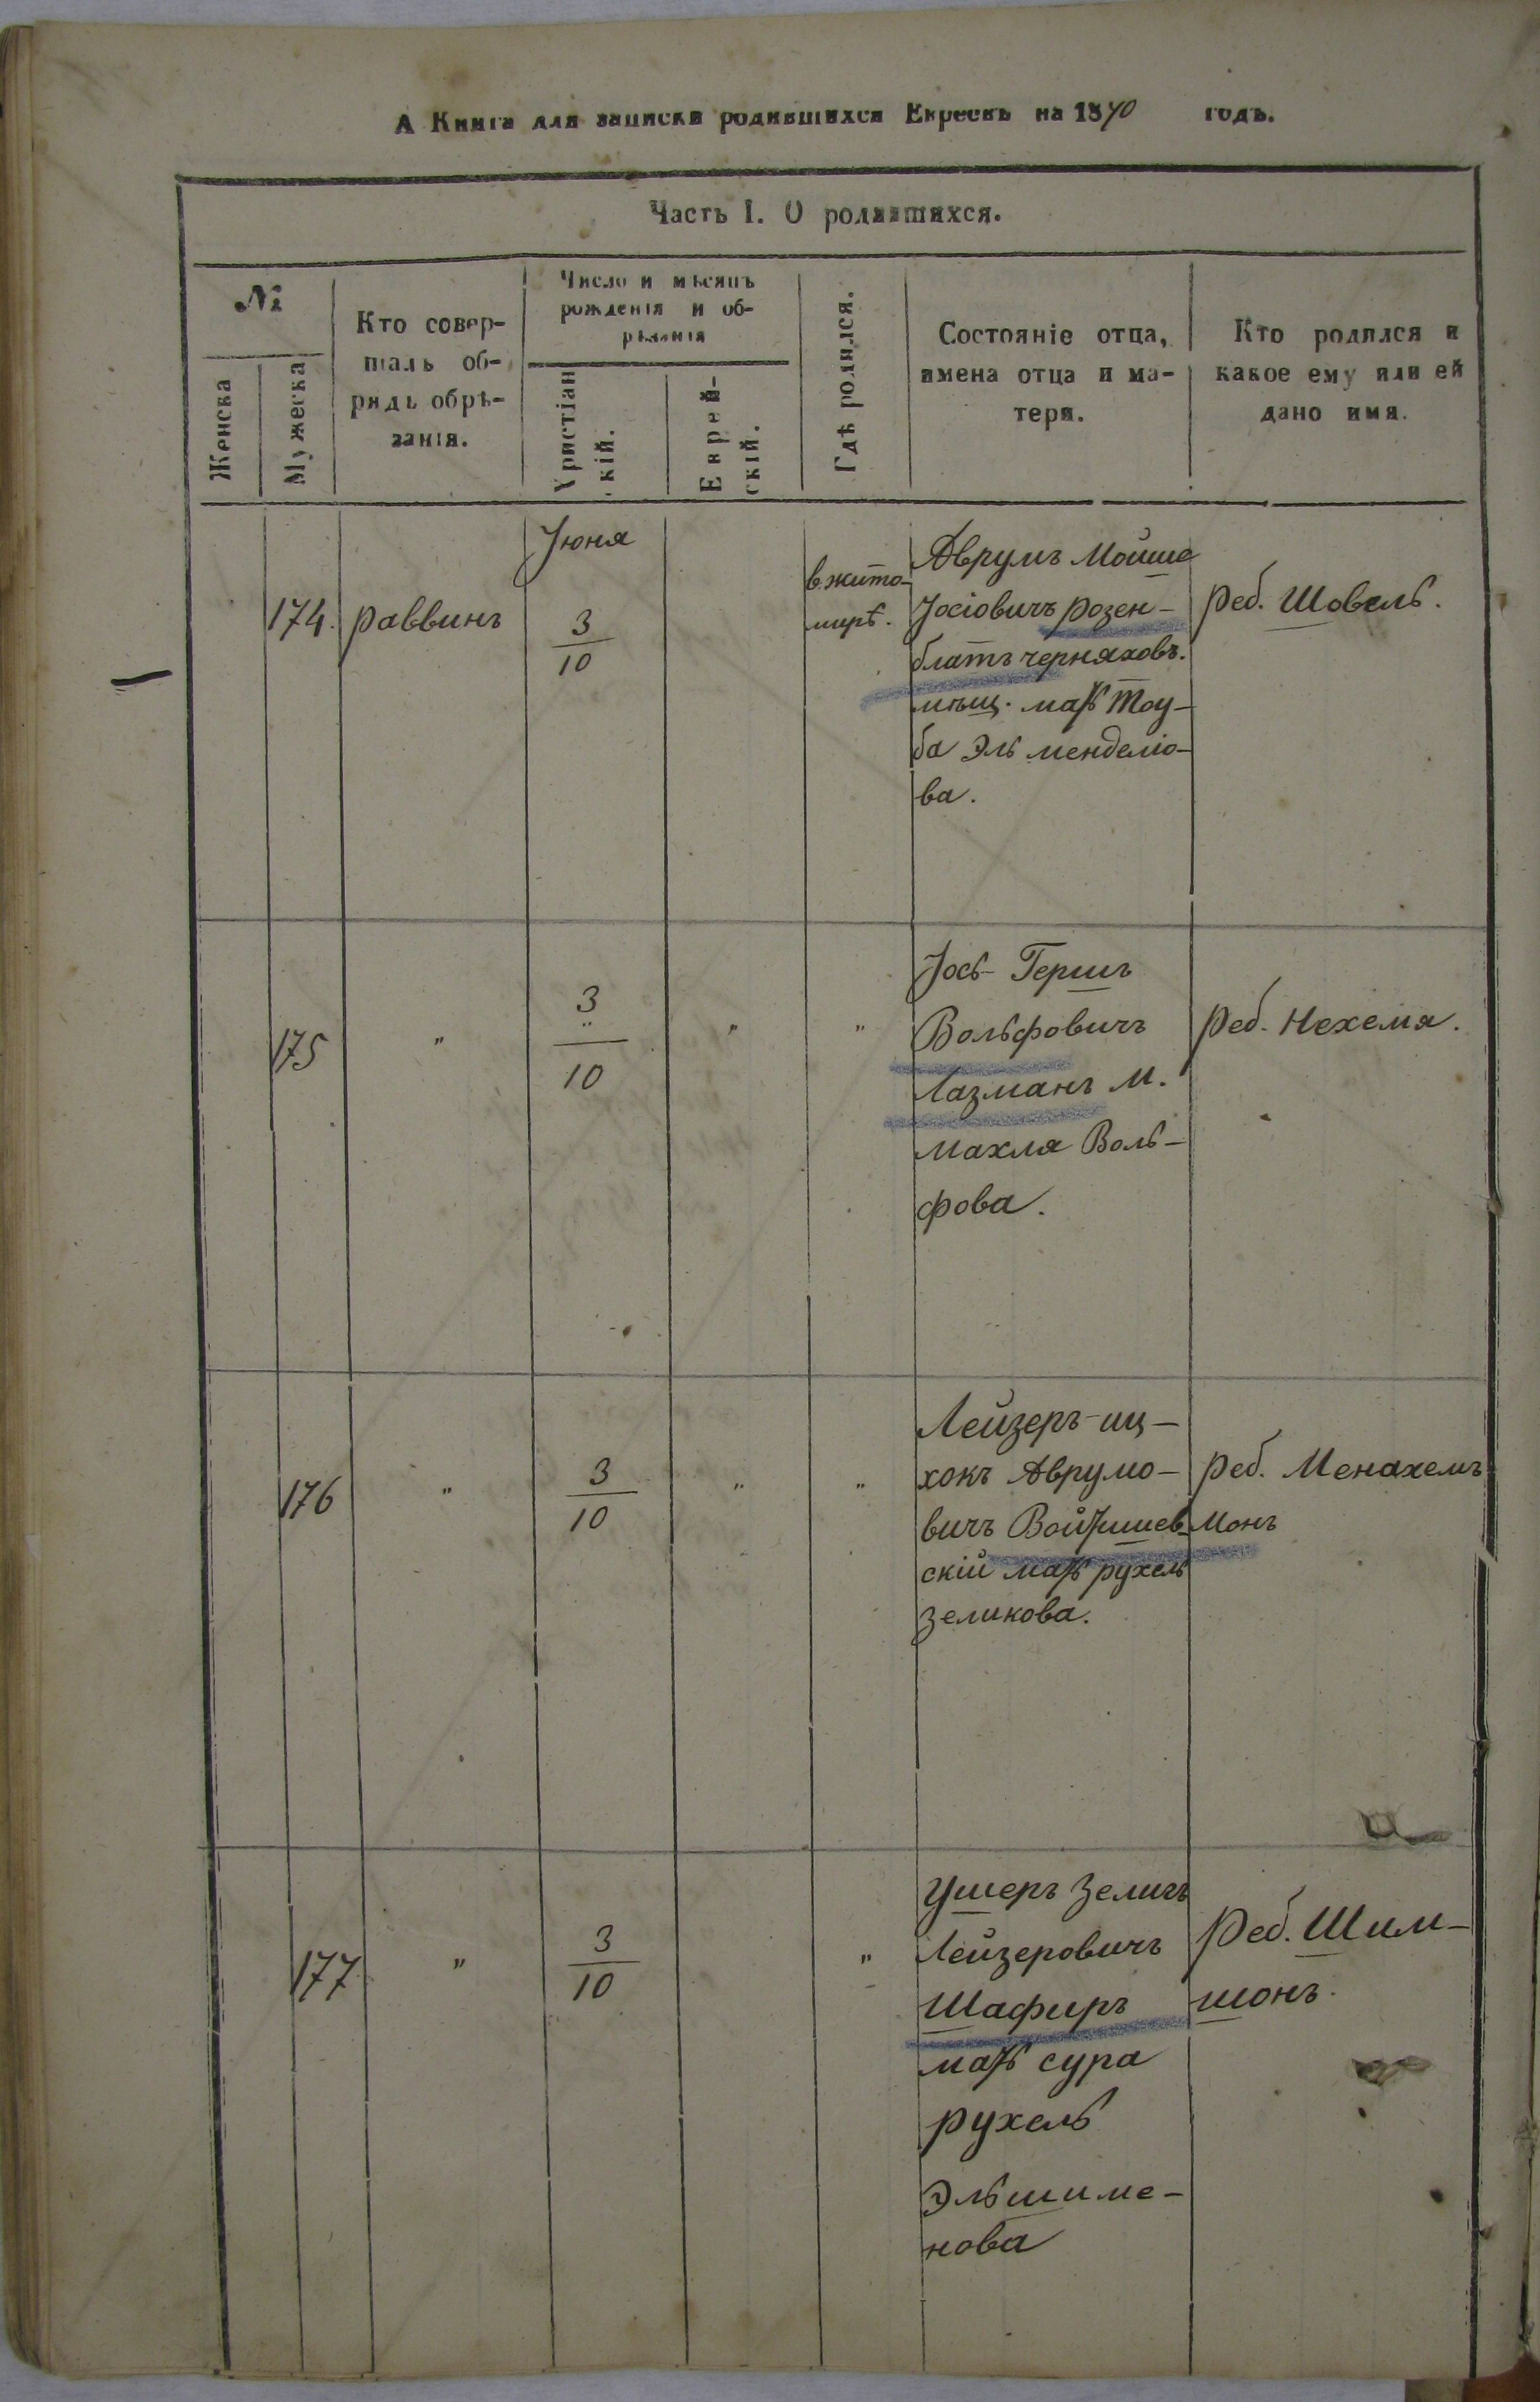 А Книга для записки родившихся Евреевъ на 1870 годъ.
Часть I. О родившихся.
№
Женска
Мужеска
Кто совер-
шалъ об-
рядъ обрѣ-
занія.
Число и мѣсяцъ
рожденія и об-
рѣзанія
Христіан
скій.
Еврей-
скій.
Гдѣ родился.
Состояніе отца,
имена отца и ма-
тери.
Кто родился и
какое ему или ей
дано имя.
174.
раввинъ
Іюня
3
10
в жито-
мирѣ.
Аврумъ Мойше
Іосіовичъ розен-
блатъ черняховъ.
мѣщ. мать Тоу-
ба Эль менделіо-
ва.
реб. Шовель.
175
"
3
"
10
"
"
Іось-Гершъ
Вольфовичъ
Лазманъ М.
Махля Воль-
фова.
реб. Нехемя.
176
"
3
10
"
"
Лейзеръ-иц-
хокъ Аврумо-
вичъ
скій мать рухель
зеликова.
реб. Менахемъ
Монъ
177
"
3
10
"
Ушеръ Зелигъ
Лейзеровичъ
Шафиръ
мать сура
рухель
Эльшиме-
нова
Реб. Шим-
шонъ.